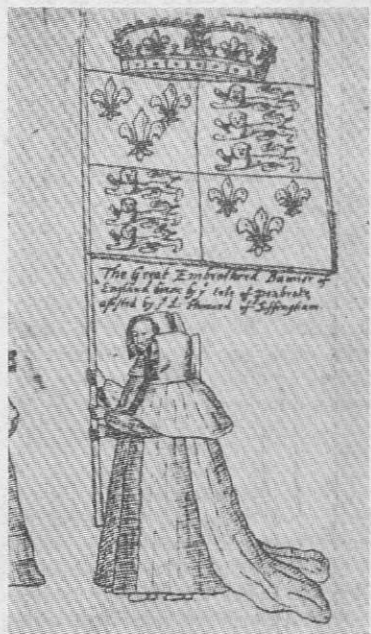 The Great Embrodired Banner of
England borne by yᵉ Erle of Penbroke
assisted by yᵉ L. Howard of Effingham